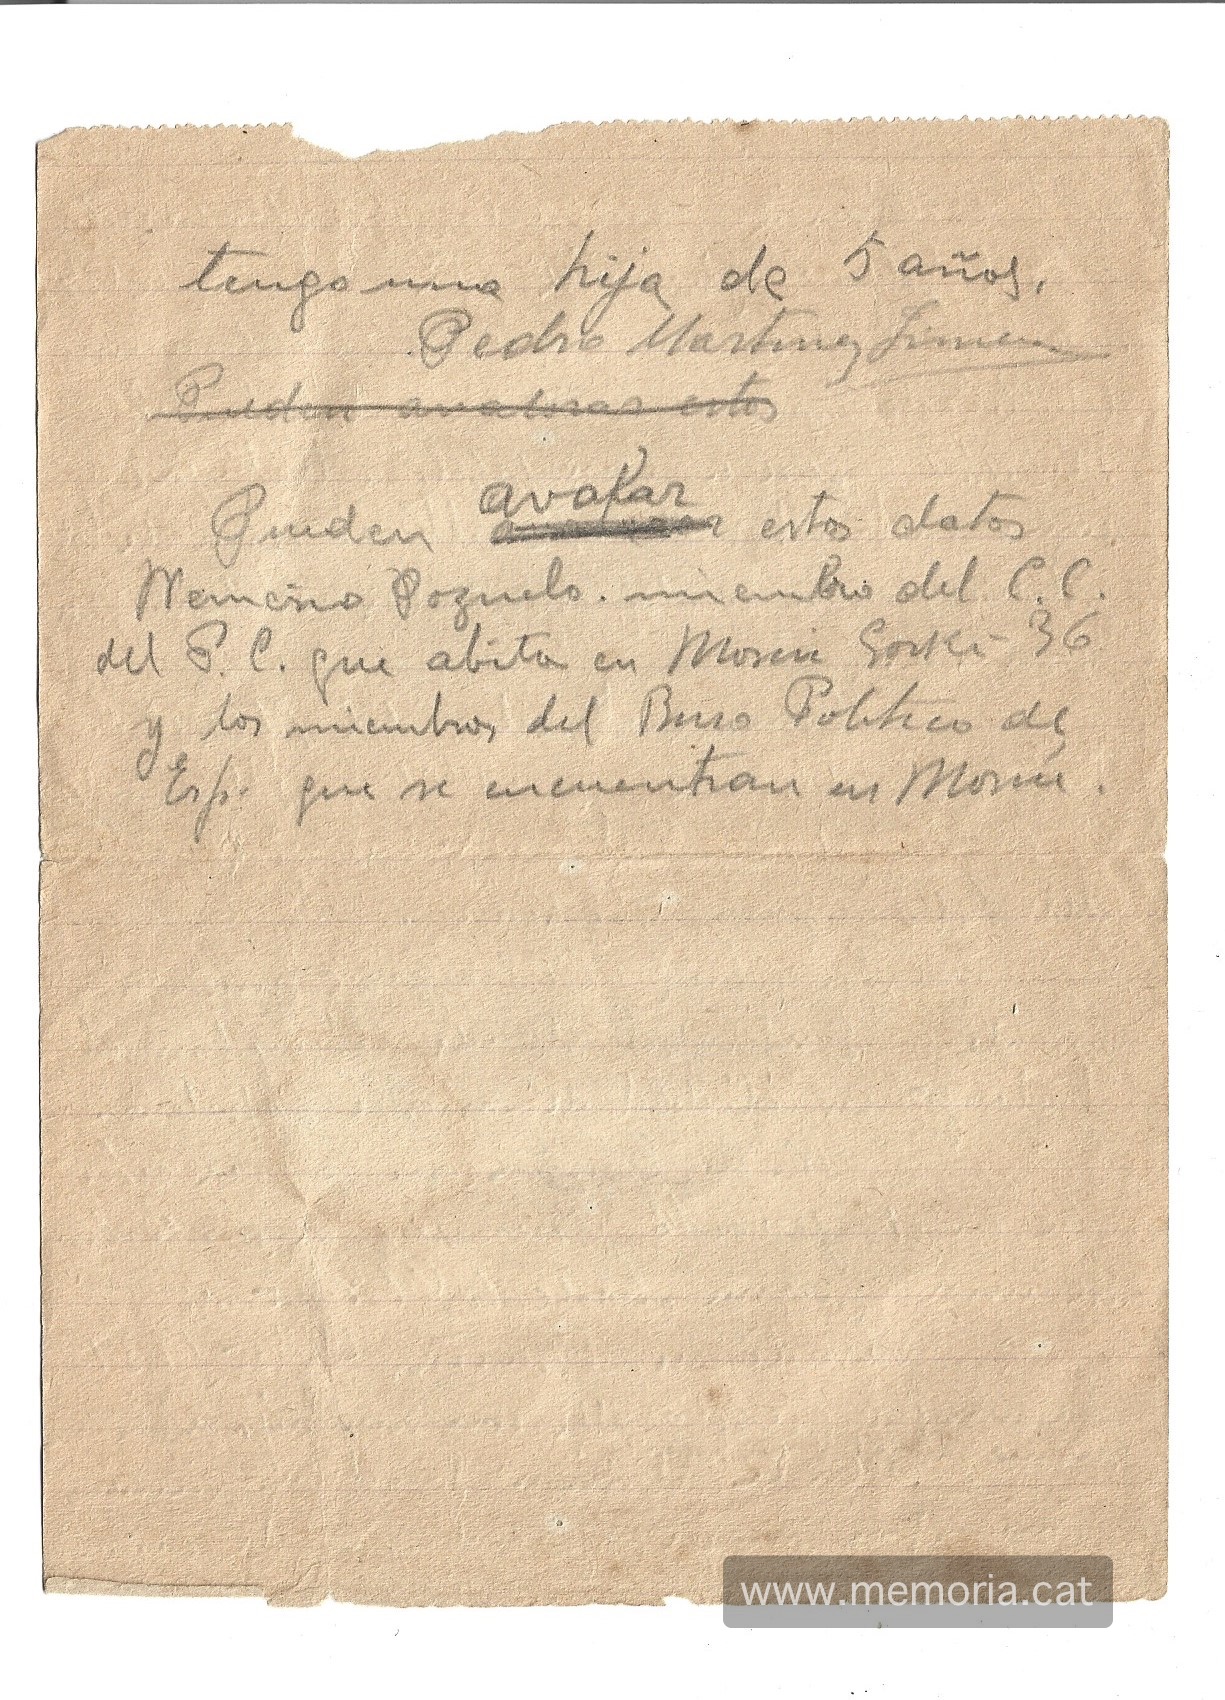 tengo una hija de 5 años.
Pedro Martinez Jimen
Pueden avalorar estos
avalar
Pueden estos datos
Nemesio Pozuelo. miembro del C.C.
del P.C. que abita en Moscu Gorki - 36
y los miembros del Buro Politico de
Esp. que se encuentran en Moscu.
www.memoria.cat